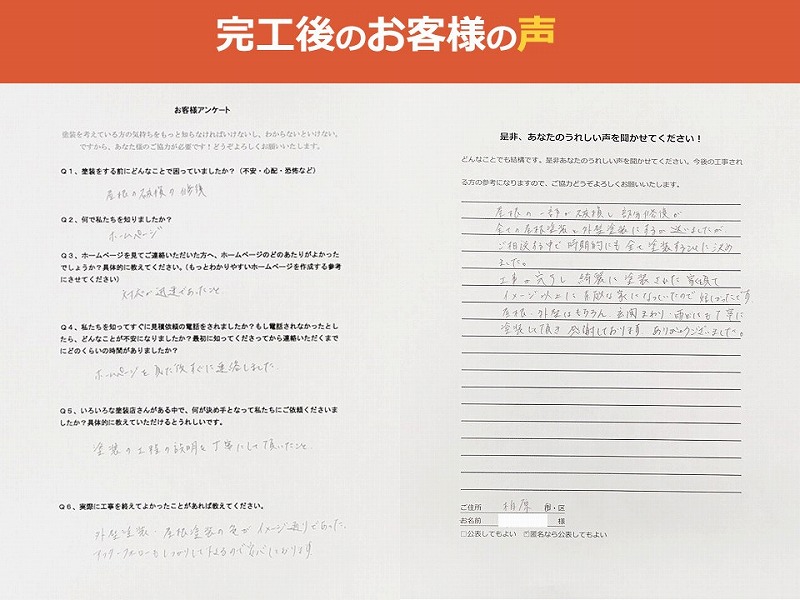 完工後のお客様の声
お客様アンケート
塗装を考えている方の気持ちをもっと知らなければいけないし、わからないといけない。
ですから、あなた様のご協力が必要です！どうぞよろしくお願いいたします。
Q１、塗装をする前にどんなことで困っていましたか？（不安・心配・恐怖など）
屋根の破損の修復
Q２、何で私たちを知りましたか？
ホームページ
Q３、ホームページを見てご連絡いただいた方へ、ホームページのどのあたりがよかった
でしょうか？具体的に教えてください。（もっとわかりやすいホームページを作成する参考
にさせてください）
対応が迅速であったこと
Q４、私たちを知ってすぐに見積依頼の電話をされましたか？もし電話されなかったとし
たら、どんなことが不安になりましたか？最初に知ってくださってから連絡いただくまで
にどのくらいの時間がありましたか？
ホームページを見た後すぐに連絡しました
Q５、いろいろな塗装店さんがある中で、何が決め手となって私たちにご依頼くださいま
したか？具体的に教えていただけるとうれしいです。
塗装の工程の説明を丁寧にして頂いたこと
Q６、実際に工事を終えてよかったことがあれば教えてください。
外壁塗装・屋根塗装の色がイメージ通りであった。
アフターフォローもしっかりして下さるので安心しております
是非、あなたのうれしい声を聞かせてください！
どんなことでも結構です。是非あなたのうれしい声を聞かせてください。今後の工事され
る方の参考になりますので、ご協力どうぞよろしくお願いいたします。
屋根の一部が破損し部分修復が
全ての屋根塗装と外壁塗装にするか迷いましたが
ご相談する中で時期的にも全て塗装することに決め
ました。
工事が完了し 綺麗に塗装された家を見て
イメージ以上に素敵な家になっていたので嬉しかったです
屋根・外壁はもちろん、玄関まわり・雨どいも丁寧に
塗装して頂き 感謝しております ありがとうございました。
ご住所 柏原 市・区
お名前 様
□公表してもよい ☑匿名なら公表してもよい